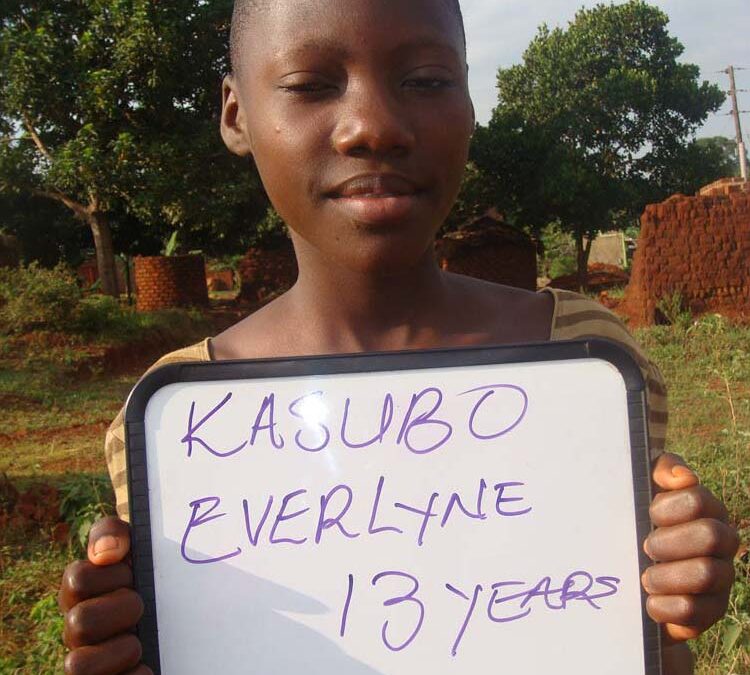 KASUBO
EVERLYNE
13 YEARS